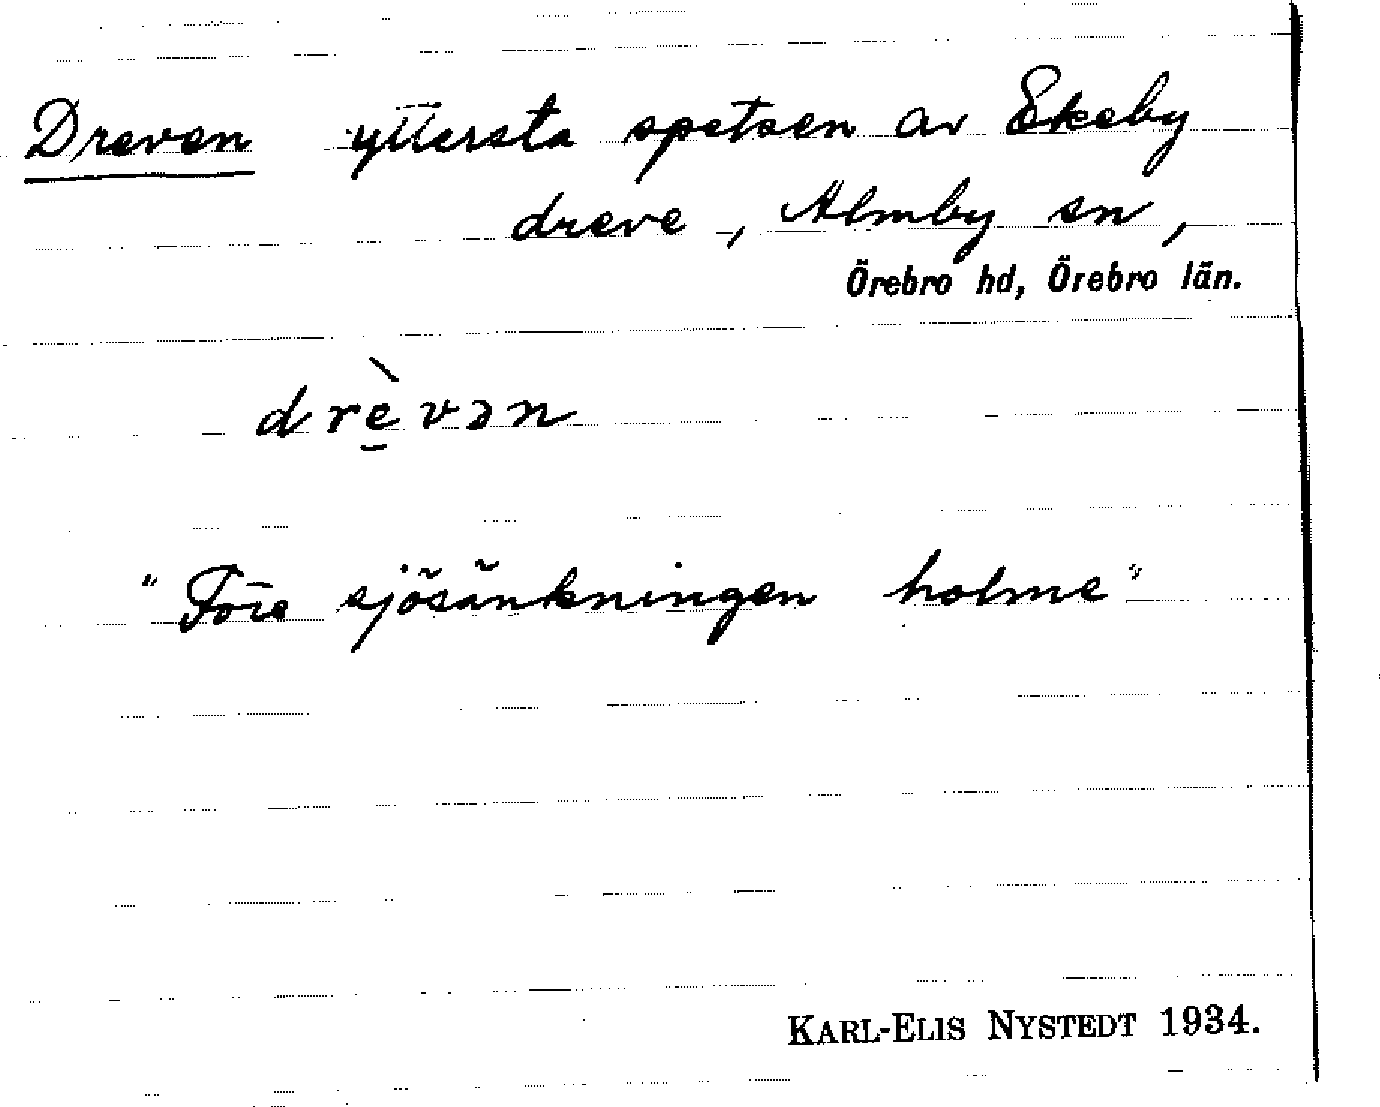 Dreven yttersta spetsen av Ekeby
dreve, Almby sn,
Örebro hd, Örebro län.
drè̱vən
"Före sjösänkningen holme"
KARL-ELIS NYSTEDT 1934.